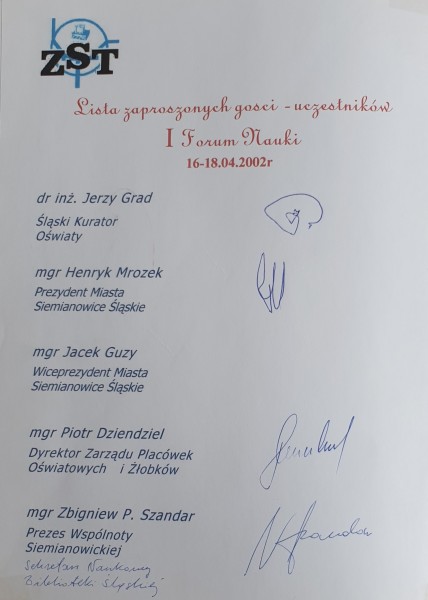 ZST
Lista zaproszonych gosci - uczestników
I Forum Nauki
16-18.04.2002r
dr inż. Jerzy Grad
Śląski Kurator
Oświaty
mgr Henryk Mrozek
Prezydent Miasta
Siemianowice Śląskie
mgr Jacek Guzy
Wiceprezydent Miasta
Siemianowice Śląskie
mgr Piotr Dziendziel
Dyrektor Zarządu Placówek
Oświatowych i Żłobków
mgr Zbigniew P. Szandar
Prezes Wspólnoty
Siemianowickiej
Sekretarz Naukowy
Biblioteki Śląskiej